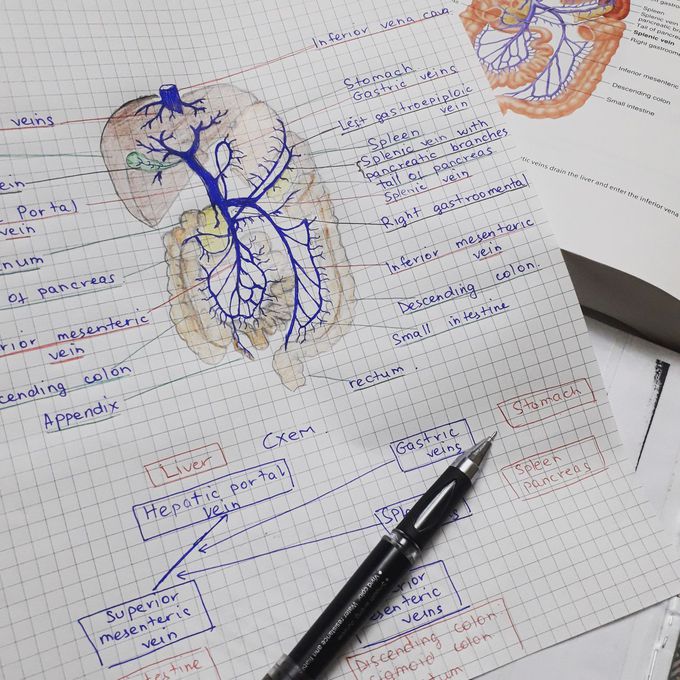 Inferior vena cava
Stomach
Gastric veins
Left gastroepiploic
vein
Spleen
Splenic vein with
pancreatic branches
tail of pancreas
Splenic vein
Right gastroomental
Inferior mesenteric
vein
Descending colon.
Small intestine
rectum.
veins
Portal
vein
of pancreas
mesenteric
vein
colon
Appendix
Схем.
Liver
Hepatic portal
vein
Gastric
veins
Stomach
Spleen
pancreas
Superior
mesenteric
vein
veins
Descending colon.
colon
Spleen
Splenic vein
pancreatic
Tail of
Splenic vein
Right
Inferior mesenteric
Descending colon
Small intestine
veins drain the liver and enter the inferior vena